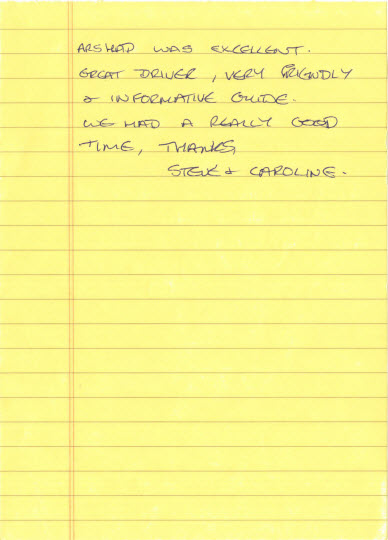 ARSHAD WAS EXCELLENT.
GREAT DRIVER, VERY FRIENDLY
& INFORMATIVE GUIDE.
WE HAD A REALLY GOOD
TIME, THANKS,
STEVE & CAROLINE.